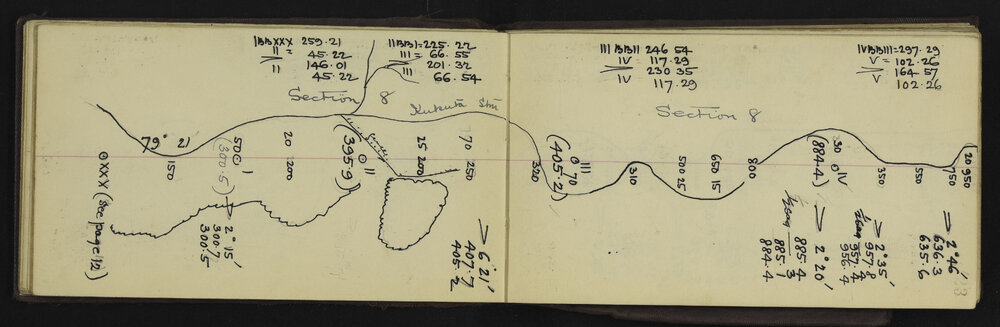 IBBXXX 259.21
II = 45.22
146.01
II 45.22
IIBBI = 225.22
III = 66.55
201.32
III 66.54
Section 8
Kukuta Stm
79° 21'
150
50
I
(300.5)
20
200
II
(395.9)
25
200
70
250
⊙XXX (see page 12)
> 2° 15'
300.7
300.5
> 6° 21'
407.7
405.2
III BBII 246 54
IV 117.29
230 35
IV 117.29
IVBBIII = 297.29
V = 102.26
164.57
V 102.26
Section 8
320
III
70
(405.2)
310
500 25
650 15
800
30
IV
(884.4)
350
550
750
20 950
885.4
3
885.1
884.4
> 2° 20'
> 2° 35'
957.8
957.4
956.4
> 2° 46'
636.3
635.6